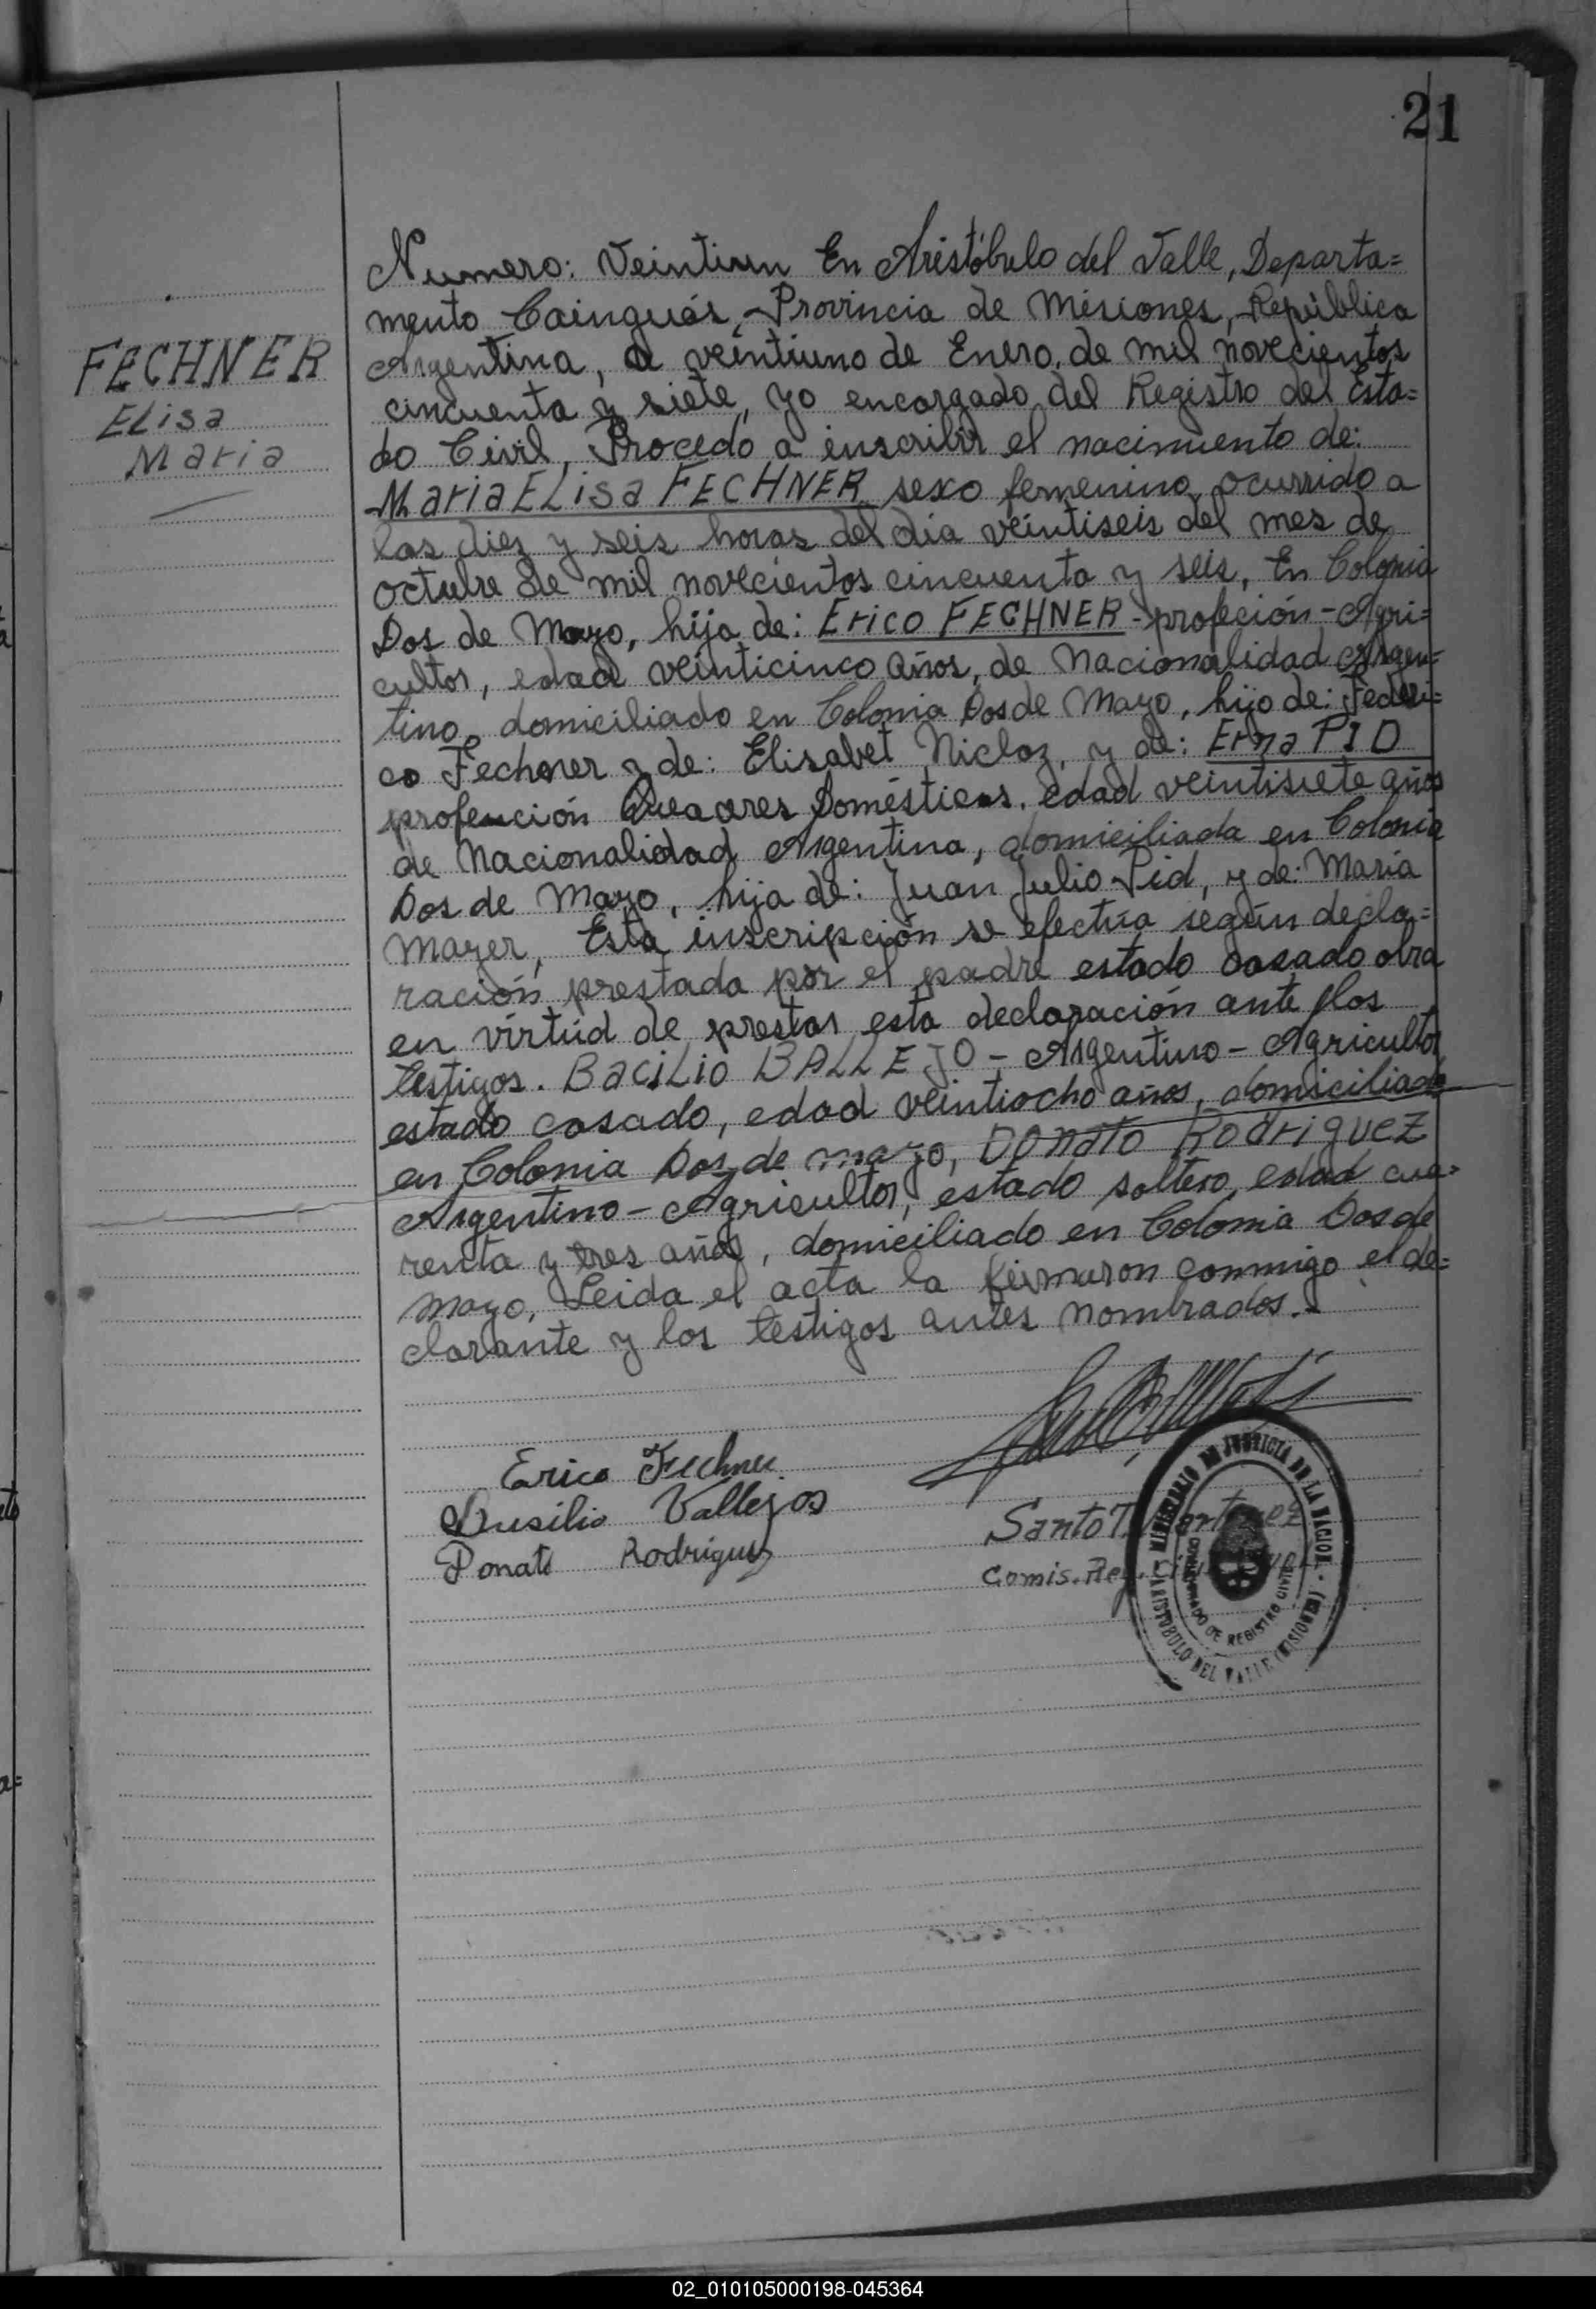 21
FECHNER
ELisa
Maria
Numero: Veintiun En Aristóbulo del Valle, Departa=
mento Cainguás, Provincia de Misiones, República
Argentina, a veintiuno de Enero, de mil novecientos
cincuenta y siete, yo encargado del Registro del Esta=
do Civil, Procedo a inscribir el nacimiento de:
Maria ELisa FECHNER sexo femenino, ocurrido a
las diez y seis horas del dia veintiseis del mes de
octubre de mil novecientos cincuenta y seis, En Colonia
Dos de Mayo, hija de: Erico FECHNER - profeción - Agri=
cultor, edad veinticinco años, de Nacionalidad Argen=
tino, domiciliado en Colonia Dos de Mayo, hijo de: Federi=
co Fechner y de: Elisabet Nicloz, y de: Erna PID
profección Queaceres Domésticos, edad veintisiete años
de Nacionalidad Argentina, domiciliada en Colonia
Dos de Mayo, hija de: Juan Julio Pid, y de: Maria
Mayer, Esta inscripción se efectúa según decla=
ración prestada por el padre estado casado obra
en virtúd de prestar esta declaración ante los
testigos. BaciLio BALLEJO - Argentino - Agricultor
estado casado, edad veintiocho años, domiciliado
en Colonia Dos de mayo, Donato Rodriguez
Argentino - Agricultor, estado soltero, edad cua=
renta y tres años, domiciliado en Colonia Dos de
mayo, Leida el acta la firmaron conmigo el de=
clarante y los testigos antes nombrados.
Erico Fechner
Busilio Vallejos
Donato Rodriguez
Santo T.
Comis. Reg.
MINISTERIO DE JUSTICIA DE LA NACION
ENCARGADO DE REGISTRO CIVIL
ARISTOBULO DEL VALLE (MISIONES)
02_010105000198-045364